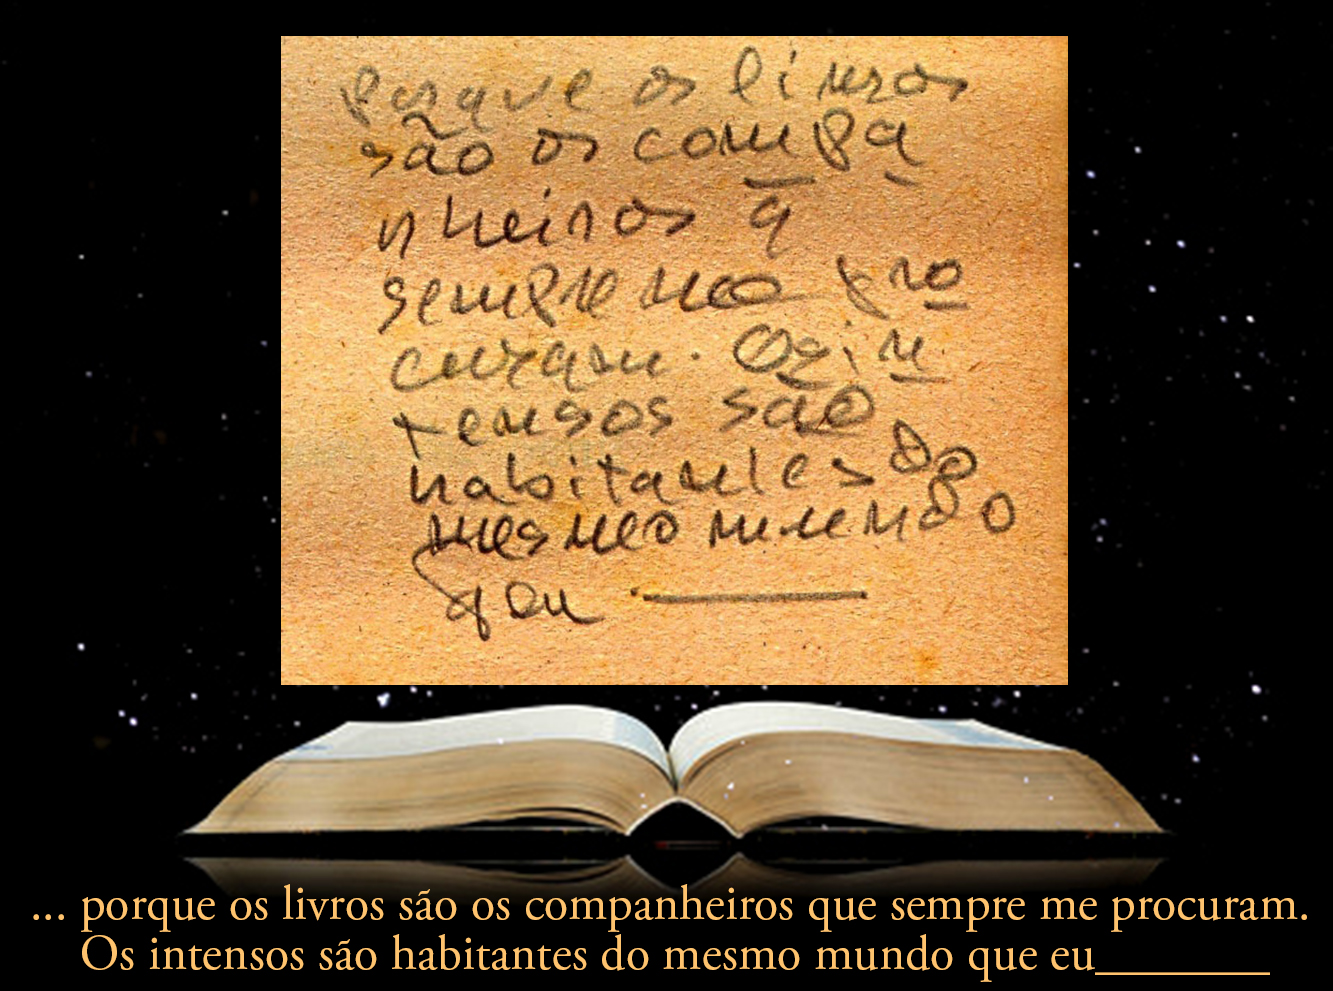 porque os livros
são os compa
nheiros q
sempre me pro
curam. Os in
tensos são
habitantes do
mesmo mundo
q eu ______
... porque os livros são os companheiros que sempre me procuram.
Os intensos são habitantes do mesmo mundo que eu_______